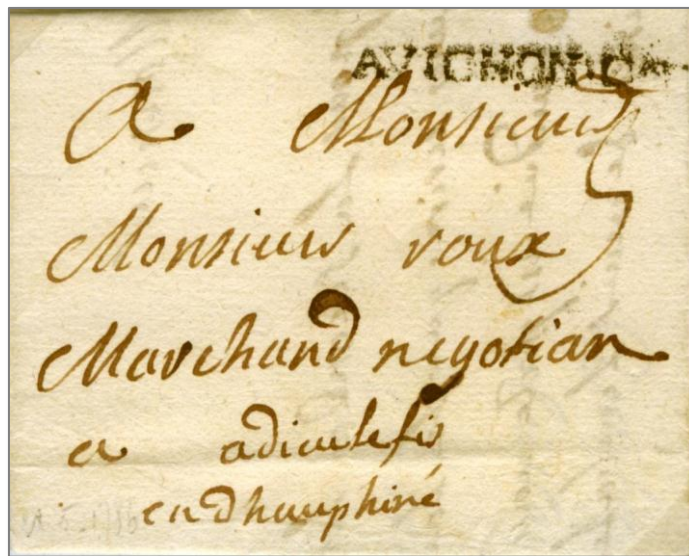 AVIGNON
A Monsieur
5
Monsieur roux
Marchand negotian
a adieulefis
en dhauphiné